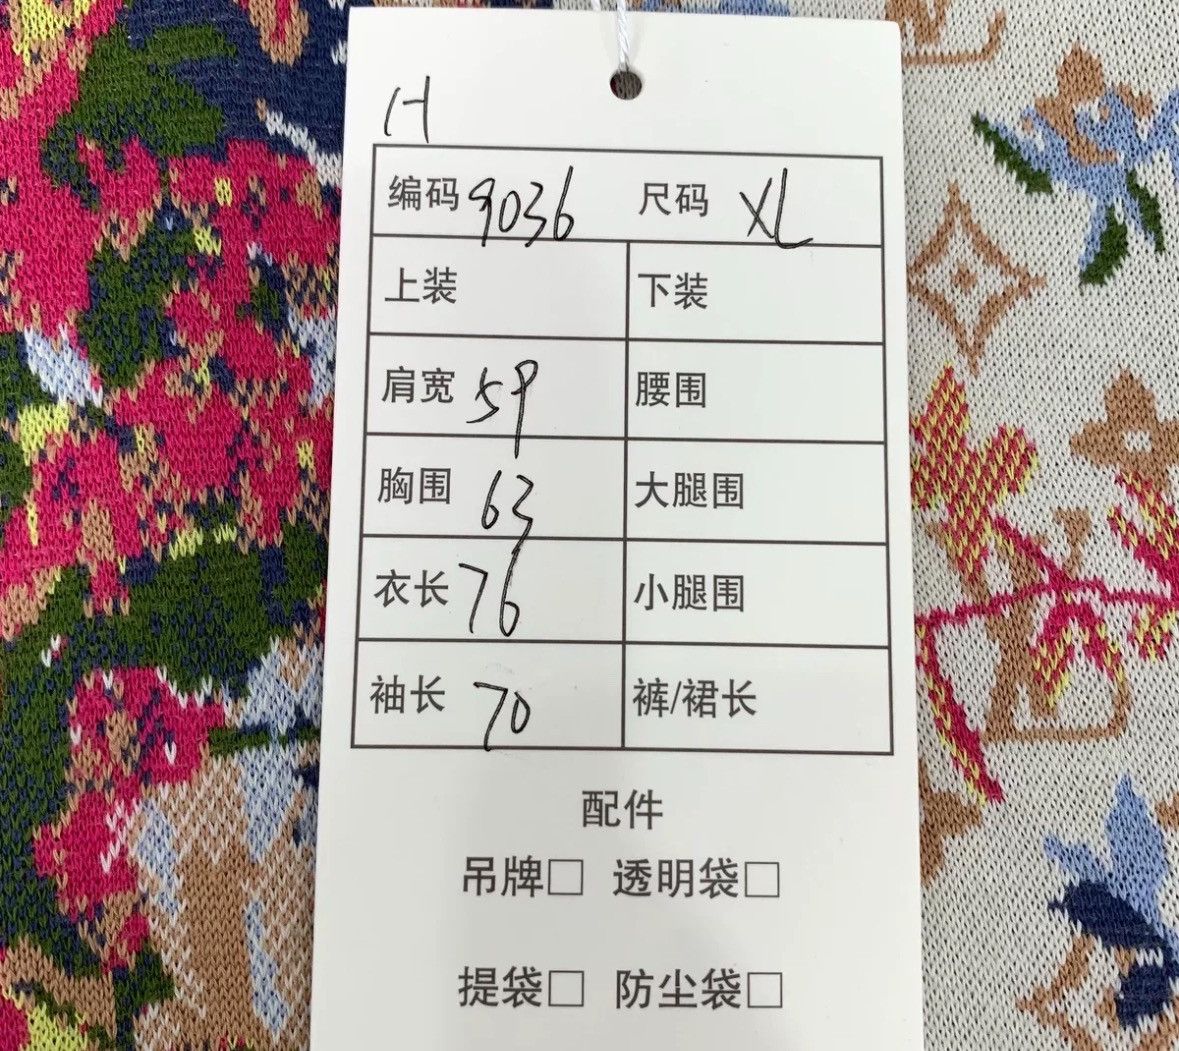 H
编码 9036 尺码 XL
上装 下装
肩宽 59 腰围
胸围 63 大腿围
衣长 76 小腿围
袖长 70 裤/裙长
配件
吊牌□ 透明袋□
提袋□ 防尘袋□